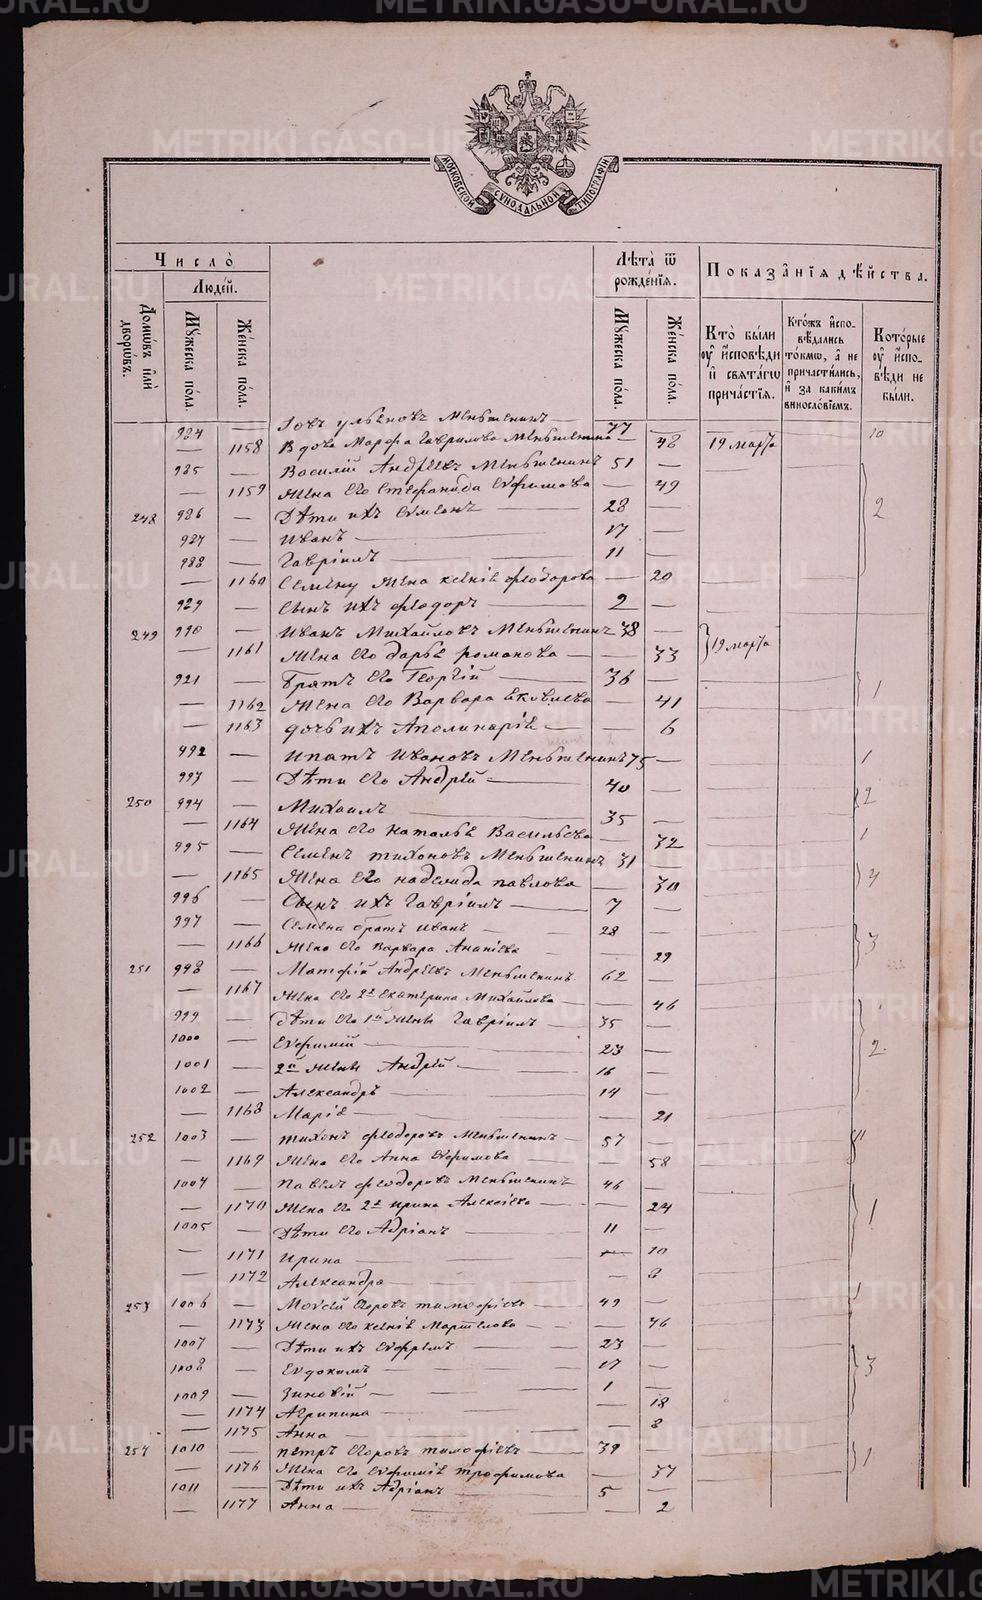 METRIKI.GASO-URAL.RU
МОСКОВСКОЙ СѴНОДАЛЬНОЙ ТИПОГРАФІИ
Число̀
Люде́й.
Домѡ́въ и҆лѝ дворѡ́въ.
Мꙋ́жеска по́ла.
Же́нска по́ла.
Лѣта̀ ѿ рожде́нїѧ.
Мꙋ́жеска по́ла.
Же́нска по́ла.
Показа̑нїѧ дѣ́йства.
Кто̀ бы́ли ᲂу҆ и҆спо́вѣди и҆ свѧта́гѡ прича́стїѧ.
Кто́жъ и҆сповѣ́дались то́кмѡ, а҆ не причасти́лись, и҆ за каки́мъ винословїемъ.
Кото́рые ᲂу҆ и҆спо́вѣди не бы́ли.
984 — Іовъ Ульяновъ Меньшенинъ — 77
— 1158 Вдова Марфа Гаврилова Меньшенина — 48 19 марта
985 — Василій Андреевъ Меньшенинъ 51 —
— 1159 Жена его Стефанида Ефимова — 49
248 986 — Дѣти ихъ Сумеонъ — 28 — 2
987 — Иванъ — 17 —
988 — Гавріилъ — 11 —
— 1160 Семену жена Ксенія Федорова — 20
989 — Сынъ ихъ Федоръ — 2 —
249 990 — Иванъ Михайловъ Меньшенинъ 38 — 19 марта
— 1161 Жена его Дарья Романова — 33
991 — Братъ его Георгій — 36 — 1
— 1162 Жена его Варвара Яковлева — 41
— 1163 дочь ихъ Аполинарія — 6
992 — Ипатъ Ивановъ Меньшенинъ 75 — 1
993 — Дѣти его Андрей — 40 —
250 994 — Михаилъ — 35 — 2
— 1164 Жена его Наталья Васильева — 32 1
995 — Семенъ Тихоновъ Меньшенинъ 31 —
— 1165 Жена его Надежда Павлова — 30 4
996 — Сынъ ихъ Гавріилъ — 7 —
997 — Семена братъ Иванъ — 28 —
— 1166 Жена его Варвара Ананіева — 29 3
251 998 — Матфій Андреевъ Меньшенинъ 62 —
— 1167 Жена его 2я Екатерина Михайлова — 46
999 — дѣти его 1й жены Гавріилъ — 35 —
1000 — Ефимій — 23 — 2
1001 — 2й жены Андрей — 16 —
1002 — Александръ — 14 —
— 1168 Марія — 21
252 1003 — Тихонъ Федоровъ Меньшенинъ — 57 —
— 1169 Жена его Анна Ефимова — 58
1004 — Павелъ Федоровъ Меньшенинъ 46 —
— 1170 Жена его 2я Ирина Алексіева — 24 1
1005 — Дѣти его Адріанъ — 11 —
— 1171 Ирина — 10
— 1172 Александра — 8
253 1006 — Моѵсей Егоровъ Тимофіевъ — 49 — 1
— 1173 Жена его Ксенія Мартелова — 46
1007 — Дѣти ихъ Ефремъ — 23 —
1008 — Евдокимъ — 17 — 3
1009 — Зиновій — 1 —
— 1174 Агрипина — 18
— 1175 Анна — 8
254 1010 — Петръ Егоровъ Тимофіевъ — 39 — 1
— 1176 Жена его Ефимія Трофимова — 37
1011 — Дѣти ихъ Адріанъ — 5 —
— 1177 Анна — 2